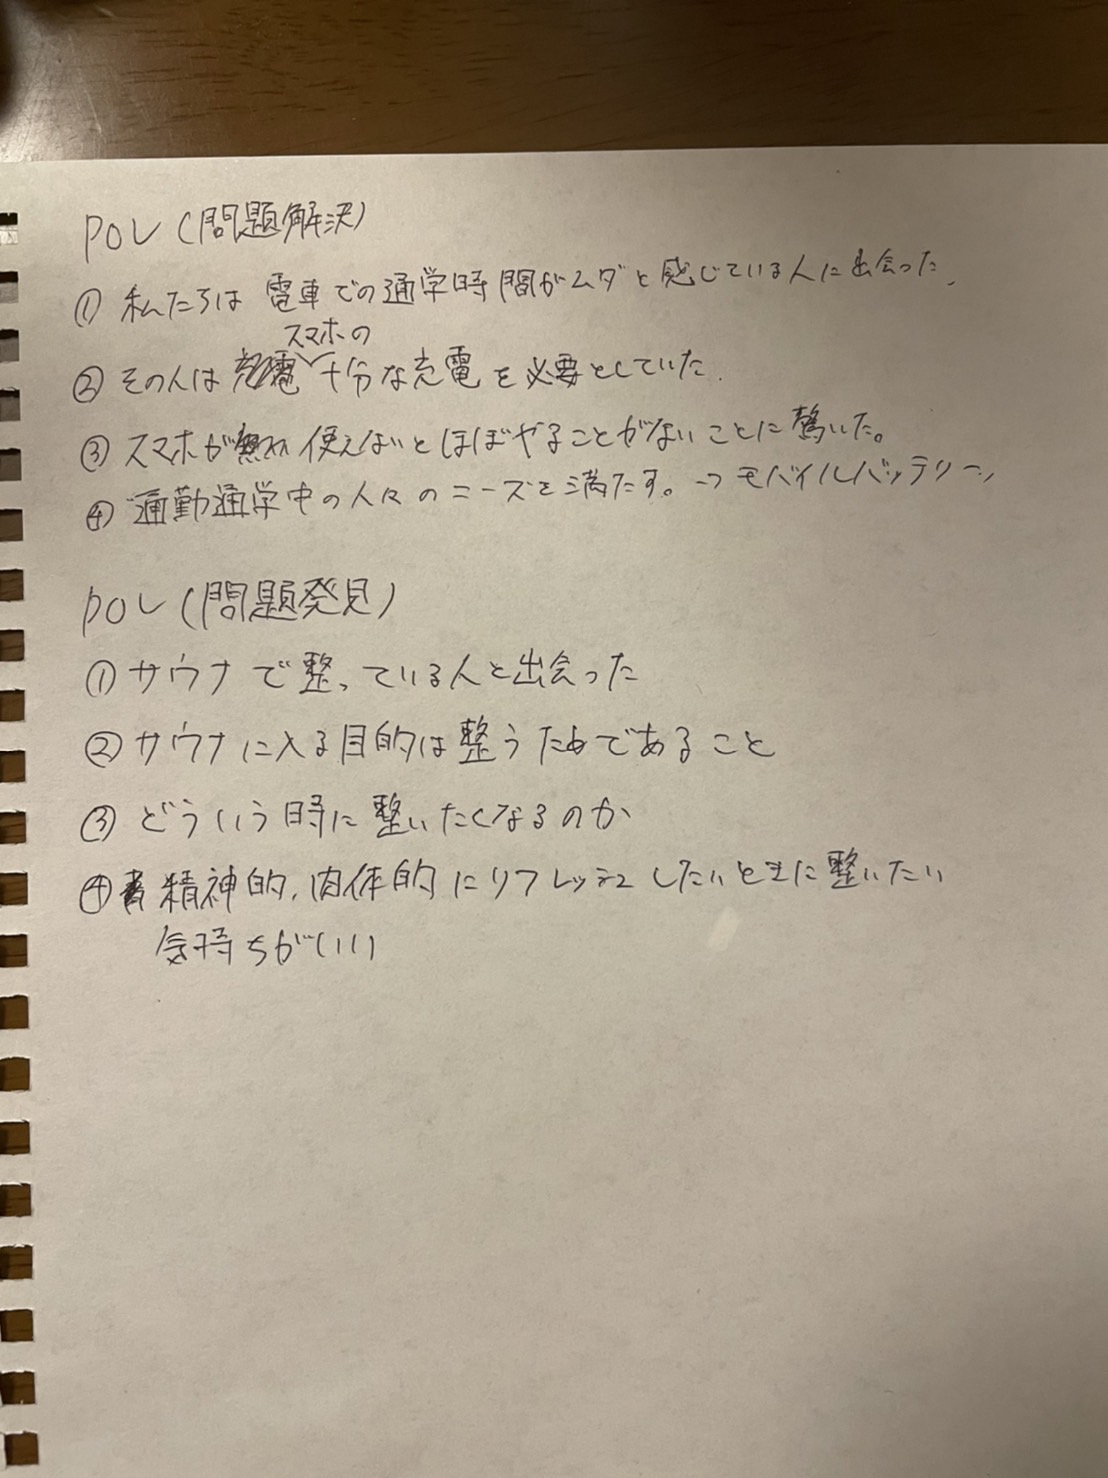 POV(問題解決)
① 私たちは 電車での通学時間がムダと感じている人に出会った.
スマホの
② その人は 十分な充電を必要としていた.
③ スマホが 使えないとほぼやることがないことに驚いた。
④ 通勤通学中の人々のニーズを満たす。→モバイルバッテリー
POV(問題発見)
① サウナで整っている人と出会った
② サウナに入る目的は整うためであること
③ どういう時に整いたくなるのか
④ 精神的、肉体的にリフレッシュしたいときに整いたい
気持ちがいい